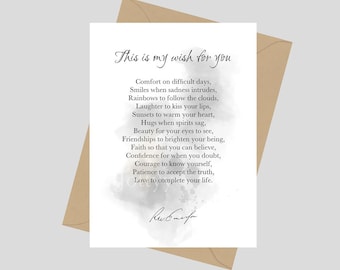 This is my wish for you
Comfort on difficult days,
Smiles when sadness intrudes,
Rainbows to follow the clouds,
Laughter to kiss your lips,
Sunsets to warm your heart,
Hugs when spirits sag,
Beauty for your eyes to see,
Friendships to brighten your being,
Faith so that you can believe,
Confidence for when you doubt,
Courage to know yourself,
Patience to accept the truth,
Love to complete your life.